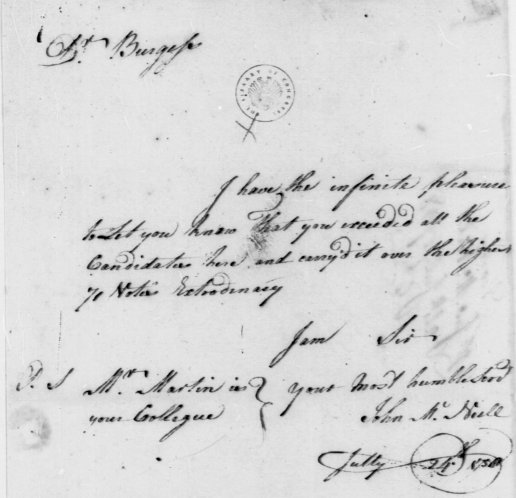 Sr Burgess
THE LIBRARY OF CONGRESS
I have the infinite pleasure
to Let you know That you exceeded all the
Candidates here and carry'd it over the highest
70 Votes Extrodinary
I am Sir
P. S Mr. Martin is your most humble Servt
your Collegue John Mc. Neill
July 24th 1758